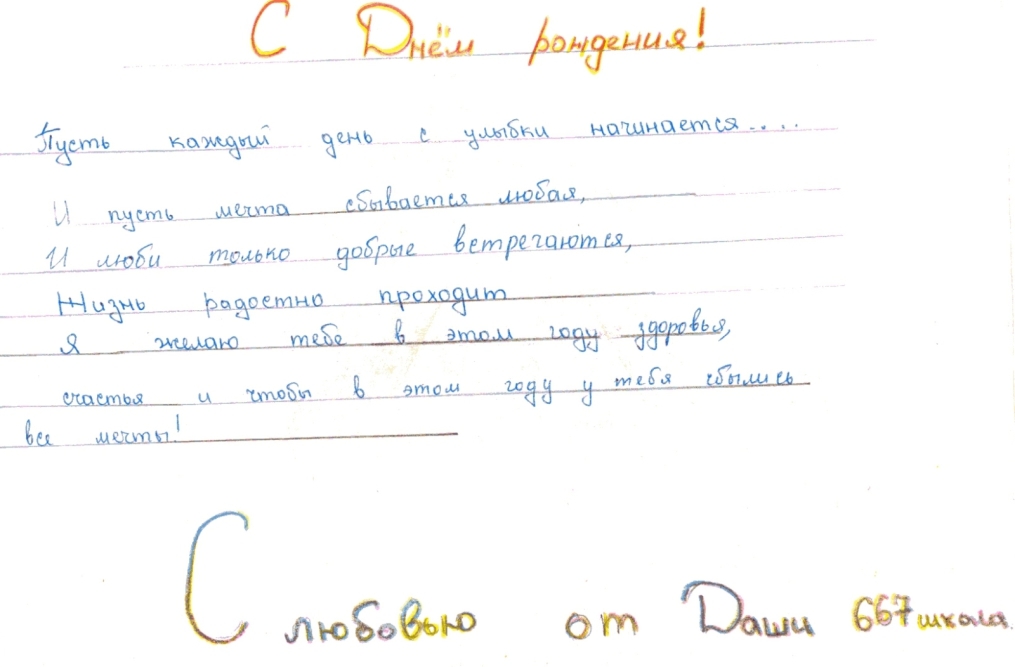 С Днём рождения!
Пусть каждый день с улыбки начинается....
И пусть мечта сбывается любая,
И люби только добрые встречаются,
Жизнь радостно проходит
Я желаю тебе в этом году здоровья,
счастья и чтобы в этом году у тебя сбылись
все мечты!
С любовью от Даши 667 школа